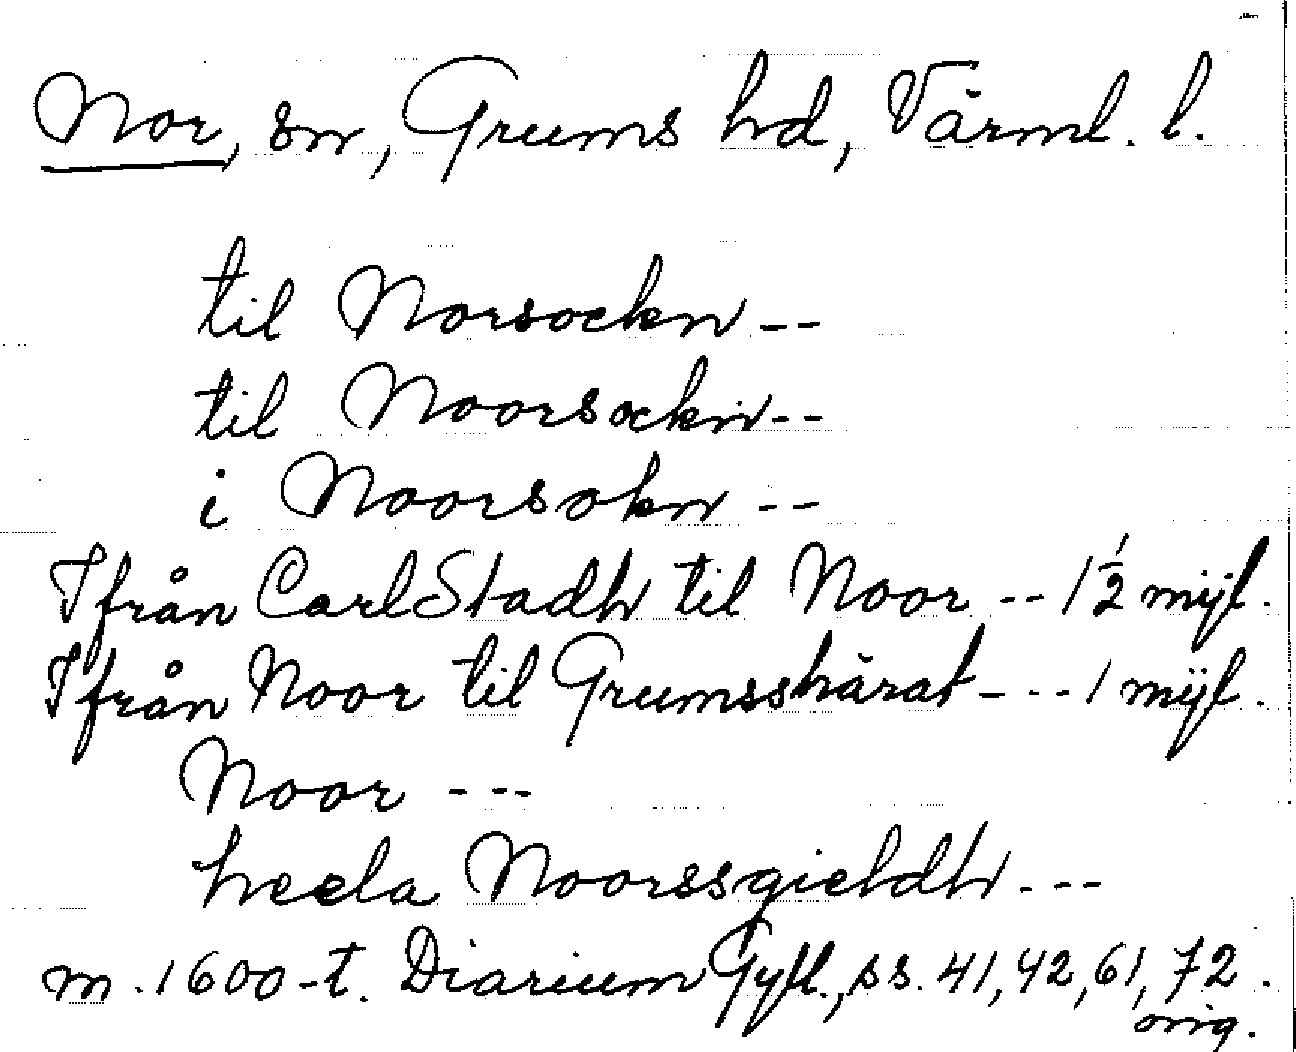 Nor, sn, Grums hd, Värml. l.
til Norsockn --
til Noorsockn --
i Noorsokn --
Ifrån CarlStadh til Noor -- 1 1/2 mijl.
Ifrån Noor til Grumsshärat - -- 1 mijl.
Noor ---
heela Noorssgieldh ---
m. 1600-t. Diarium Gyll., ss. 41, 42, 61, 72.
orig.